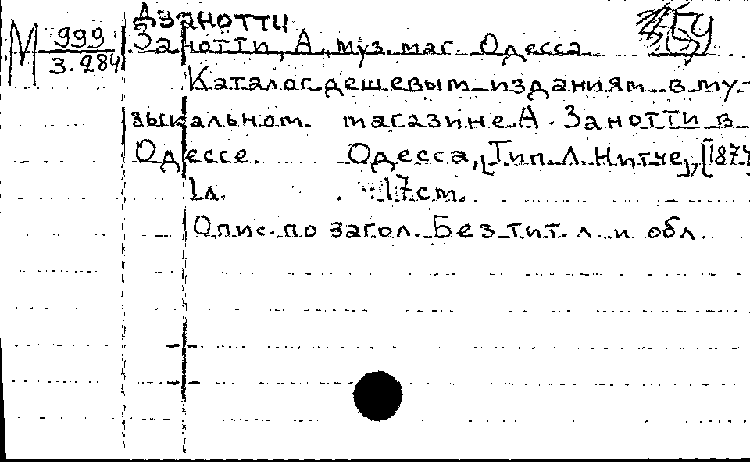 Дзанотти
М 999 Занотти, А., муз. маг. Одесса
З.284
Каталог дешевым изданиям в му-
зыкальном магазине А. Занотти в
Одессе. Одесса, [Тип. Л. Нитче], [187
1л. 17см.
Опис. по загол. Без тит. л. и обл.